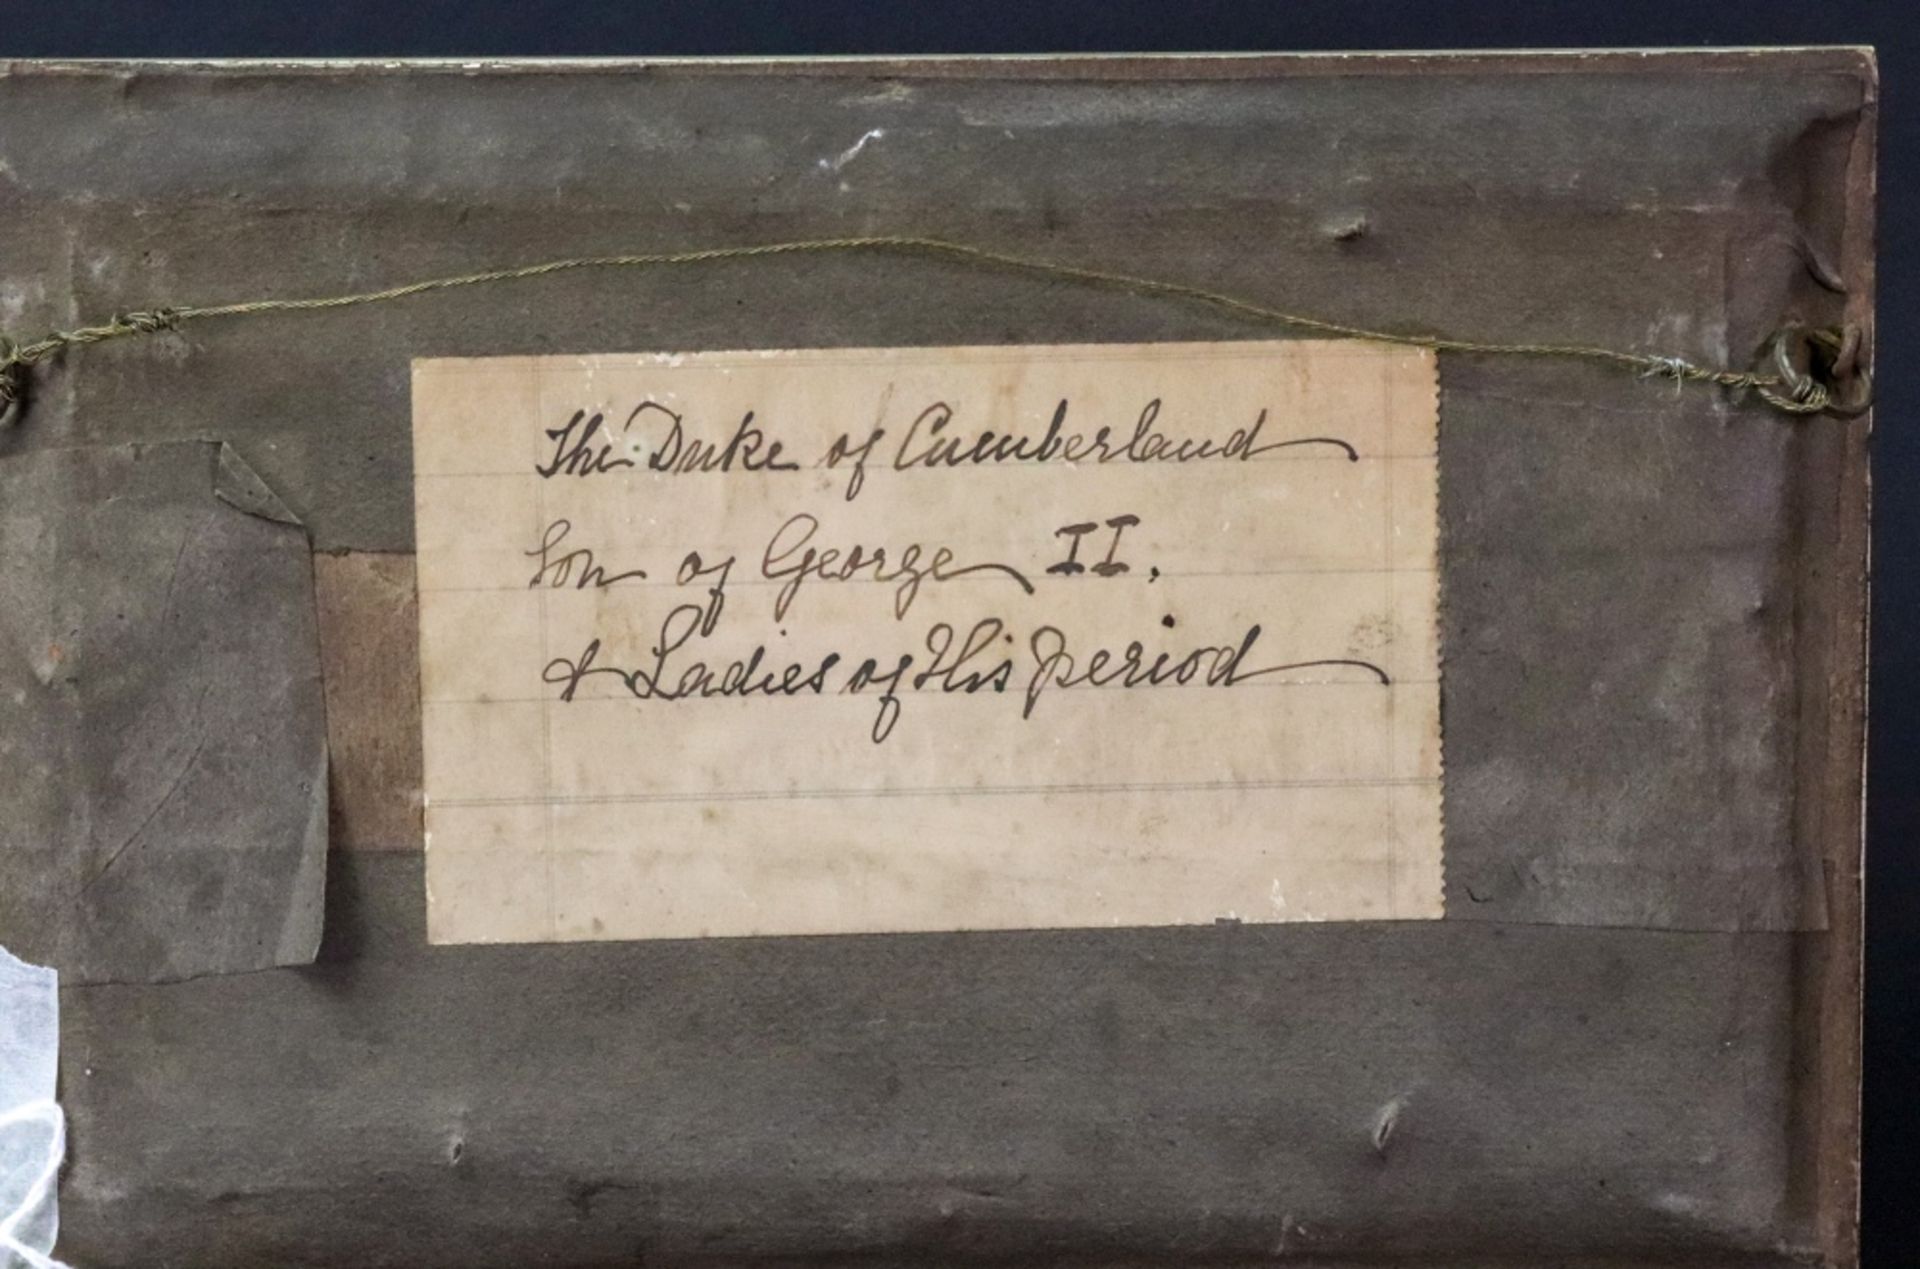 The Duke of Cumberland
Son of George II.
& Ladies of His period